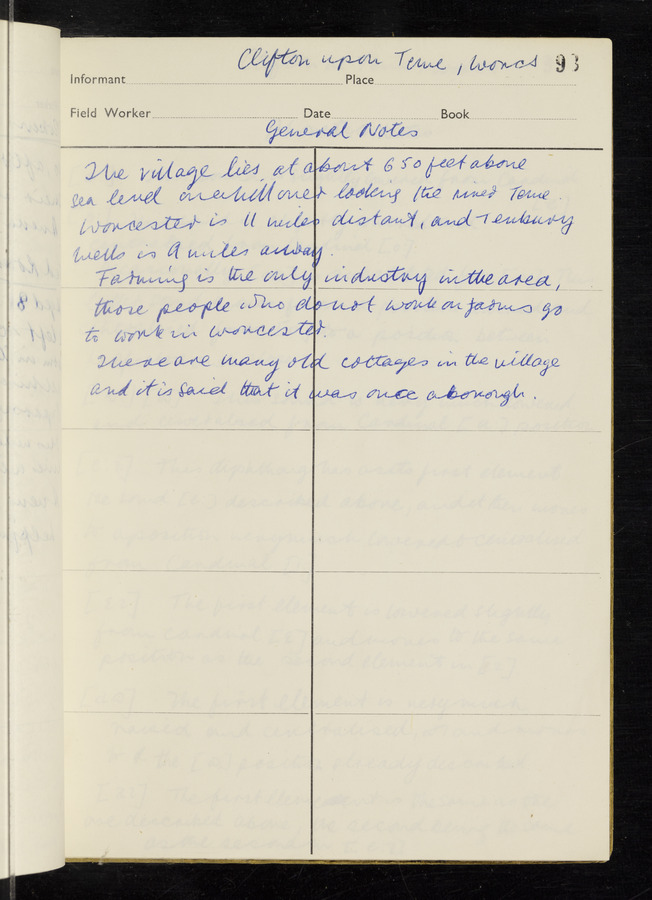 Clifton upon Teme, Worcs 93
Informant Place
Field Worker Date Book
General Notes
The village lies at about 650 feet above
sea level on a hill over looking the river Teme
Worcester is 11 miles distant, and Tenbury
Wells is 9 miles away.
Farming is the only industry in the area,
those people who do not work on farms go
to work in Worcester.
There are many old cottages in the village
and it is said that it was once a borough.